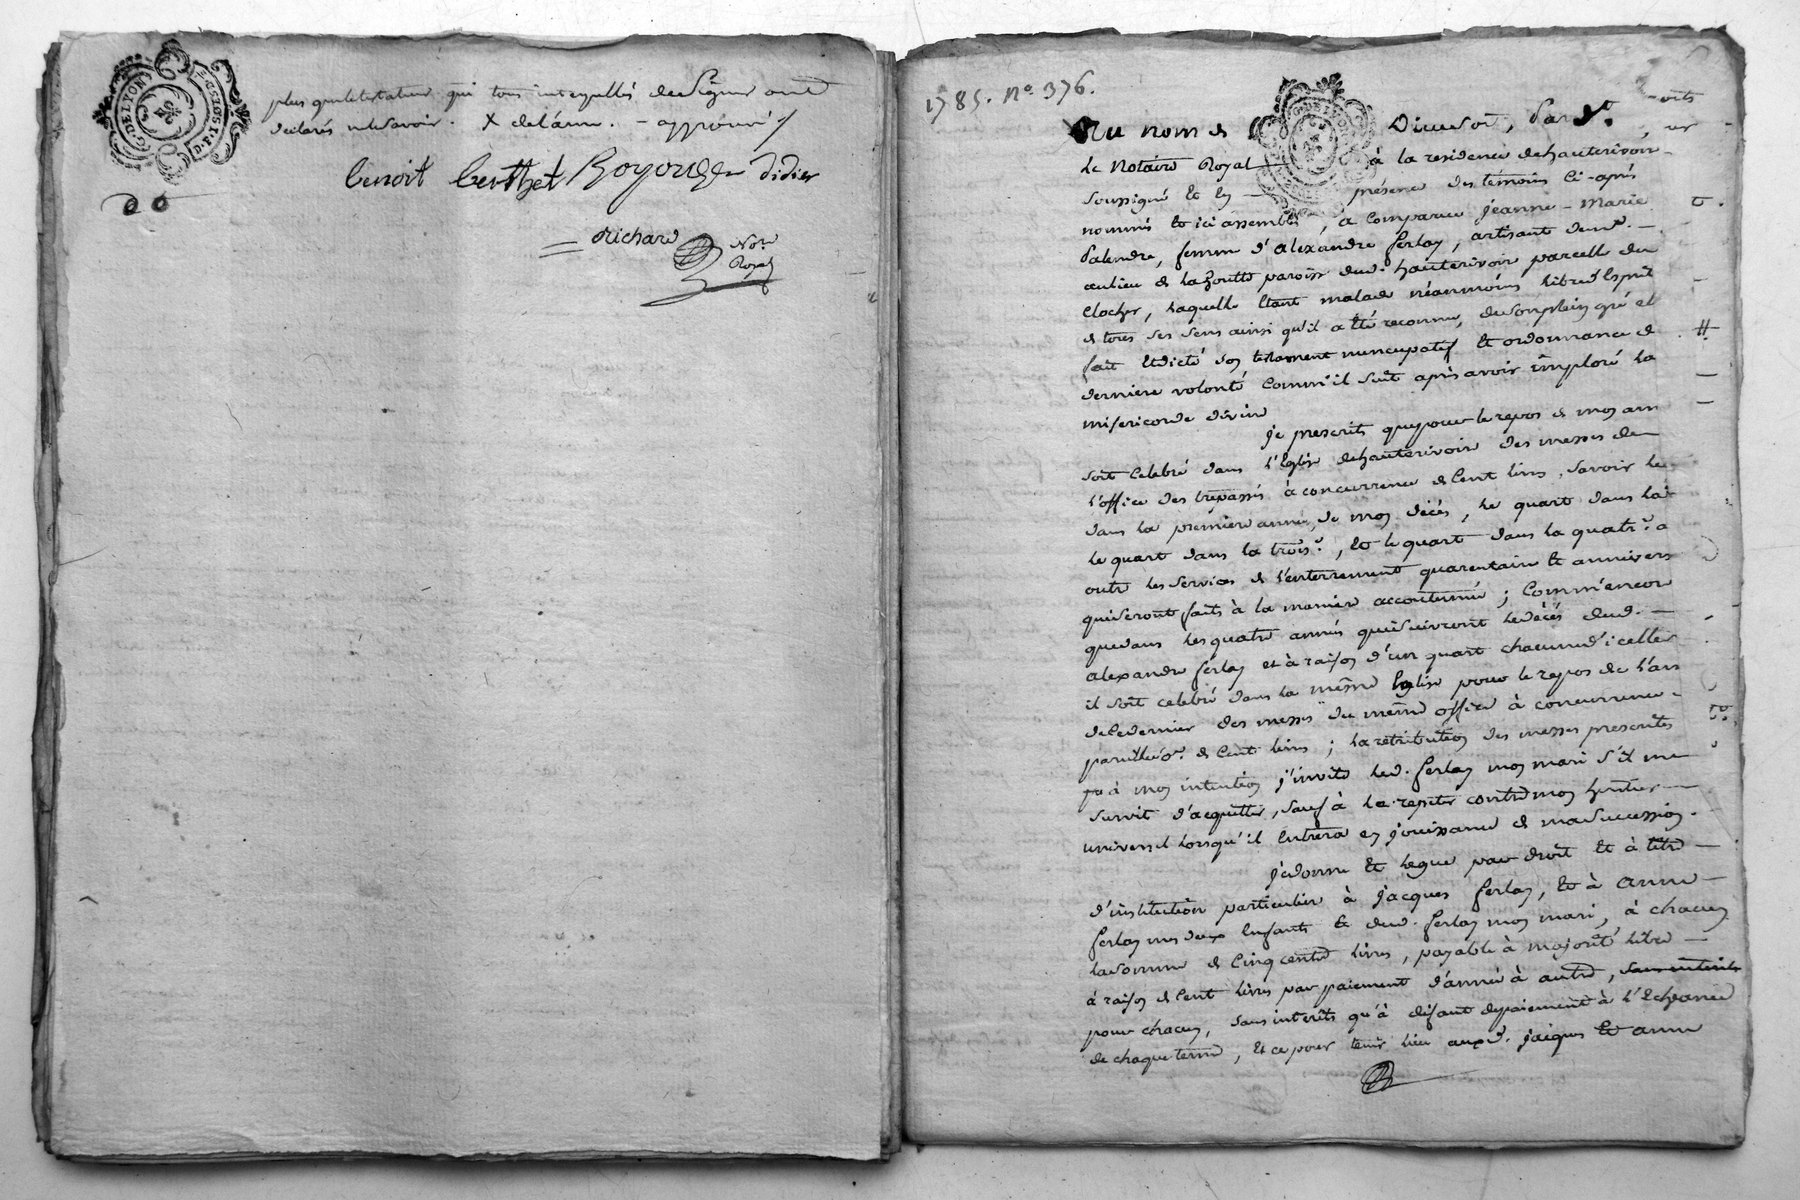 DE LYON
plus que le testateur qui tous interpellés de Signer ont
declarés ne le savoir. X de l'ame. - approuvé
benoit berthet Royou didier
Richard Not.re
Royal
1785. N.o 376.
Au nom de Dieu soit,
Le Notaire Royal à la residence de hauterivoir
soussigné et en présence des témoins Ci-après
nommés et ici assemblés, a comparue jeanne-Marie
Palendre, femme d'alexandre ferlay, artisant dem.t
au lieu de La goutte paroisse dud. hauterivoir parcelle du
Clocher, Laquelle Etant malade néanmoins libre d'Esprit
& tous ses sens ainsi qu'il a Eté reconnu, de son plein gré et
fait et dicté son testament nuncupatif et ordonnance de
derniere volonté Comm'il suit après avoir imploré la
misericorde divine
je prescrits que pour le repos de mon ame
soit Celebré dans l'Eglise de hauterivoir des messes de
l'office des trépassés à concurrence de Cent livres, savoir le
dans la premiere année de mon décés, Le quart dans la
Le quart dans la trois.e, et le quart dans la quatr.e
outre les services de l'enterrement quarentaine et annivers
qui seront faits à la maniere accoutumée; Comm'encore
que dans les quatre années qui suivront le décés dud.
alexandre ferlay et à raison d'un quart chacune d'icelles
il soit celebré dans la même Eglise pour le repos de l'ame
de ce dernier des messes du même office à concurrence
pareille de Cent livres; la retribution des messes prescrites
à mon intention j'invite led. ferlay mon mari s'il me
survit d'acquitter, sauf à la repeter contre mon heritier
universel lorsqu'il Entrera en jouissance de ma succession.
je donne et legue par droit et à titre
d'institution particuliere à jacques ferlay, et à anne
ferlay mes deux Enfants & dud. ferlay mon mari, à chacun
la somme de Cinq cents livres, payable à majorité libre
à raison de Cent livres par paiement d'année à autre, sans interets
pour chacun, sans interêts qu'à défaut de paiement à l'Echéance
de chaque terme, Et ce pour tenir lieu auxd. jacques et anne